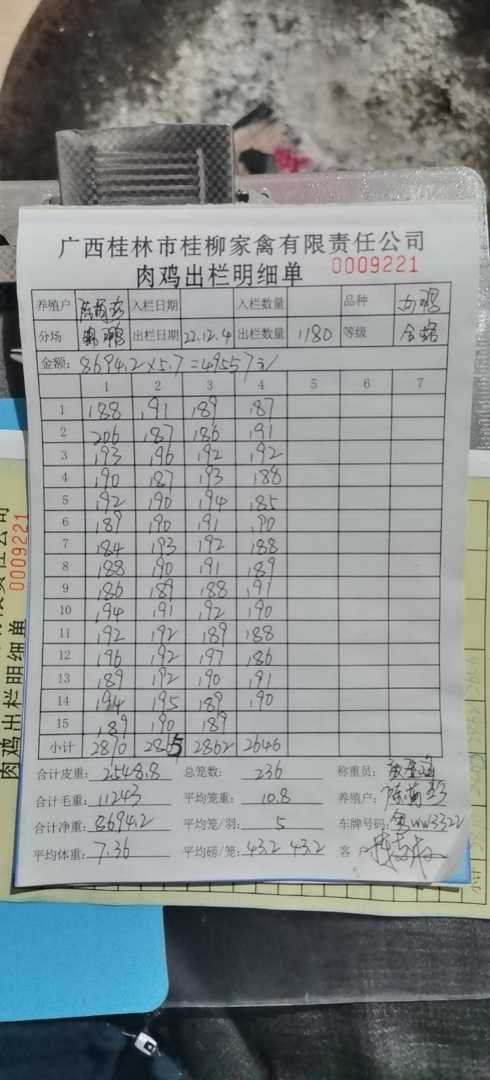 广西桂林市桂柳家禽有限责任公司
肉鸡出栏明细单 0009221
养殖户 入栏日期 入栏数量 品种 肉鸡
分场 出栏日期 22.12.4 出栏数量 1180 等级 合格
金额: 8694.2×5.7=49557元
1 2 3 4 5 6 7
1 188 191 189 187
2 206 187 186 191
3 193 196 192 192
4 190 187 193 188
5 192 190 194 185
6 189 190 191 190
7 184 193 192 188
8 188 190 191 189
9 186 189 188 191
10 194 191 192 190
11 192 192 189 188
12 196 192 197 186
13 189 192 190 191
14 194 195 189 190
15 189 190 189
小计 2870 2865 2862 2646
合计皮重: 2548.8 总笼数: 236 称重员:
合计毛重: 11243 平均笼重: 10.8 养殖户:
合计净重: 8694.2 平均笼/羽: 5 车牌号码: WW3322
平均体重: 7.36 平均磅/笼: 43.2 43.2 客户
肉鸡出栏明细单 0009221